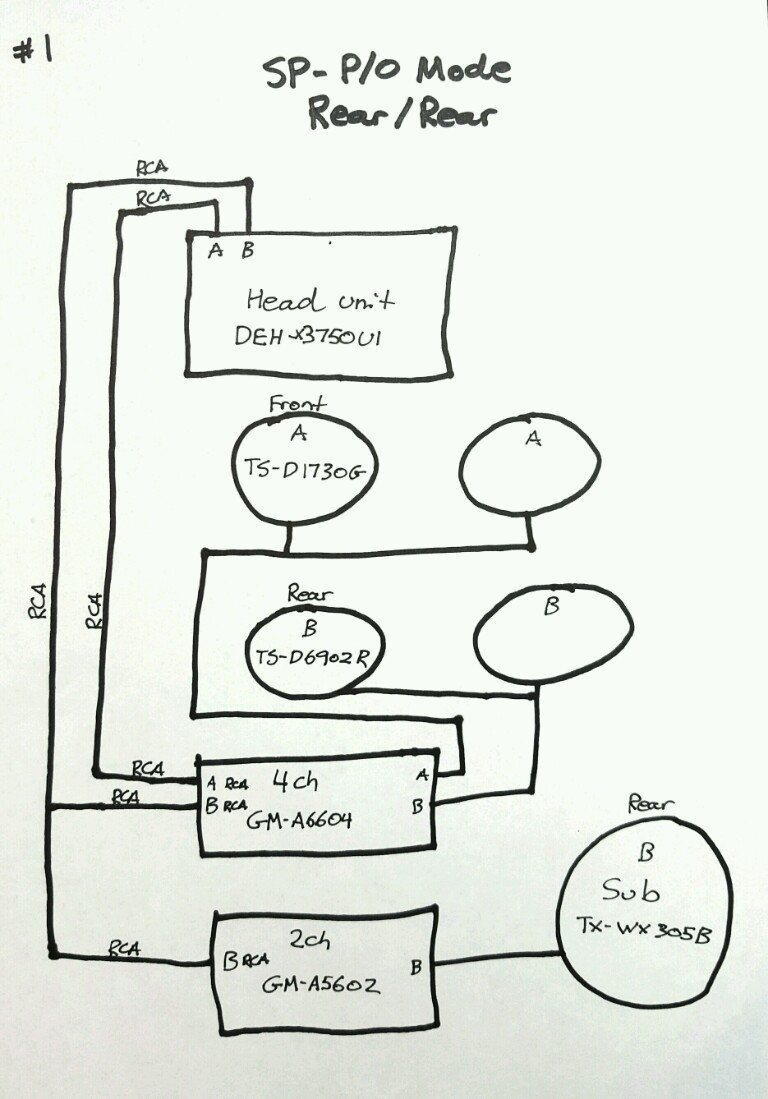 #1
SP- P/O Mode
Rear/Rear
RCA
RCA
A B
Head unit
DEH-X3750UI
Front
A
TS-D1730G
A
RCA
RCA
Rear
B
TS-D6902R
B
RCA
RCA
A RCA 4ch A
B RCA B
GM-A6604
Rear
B
Sub
TX-WX305B
RCA
2ch
B RCA B
GM-A5602